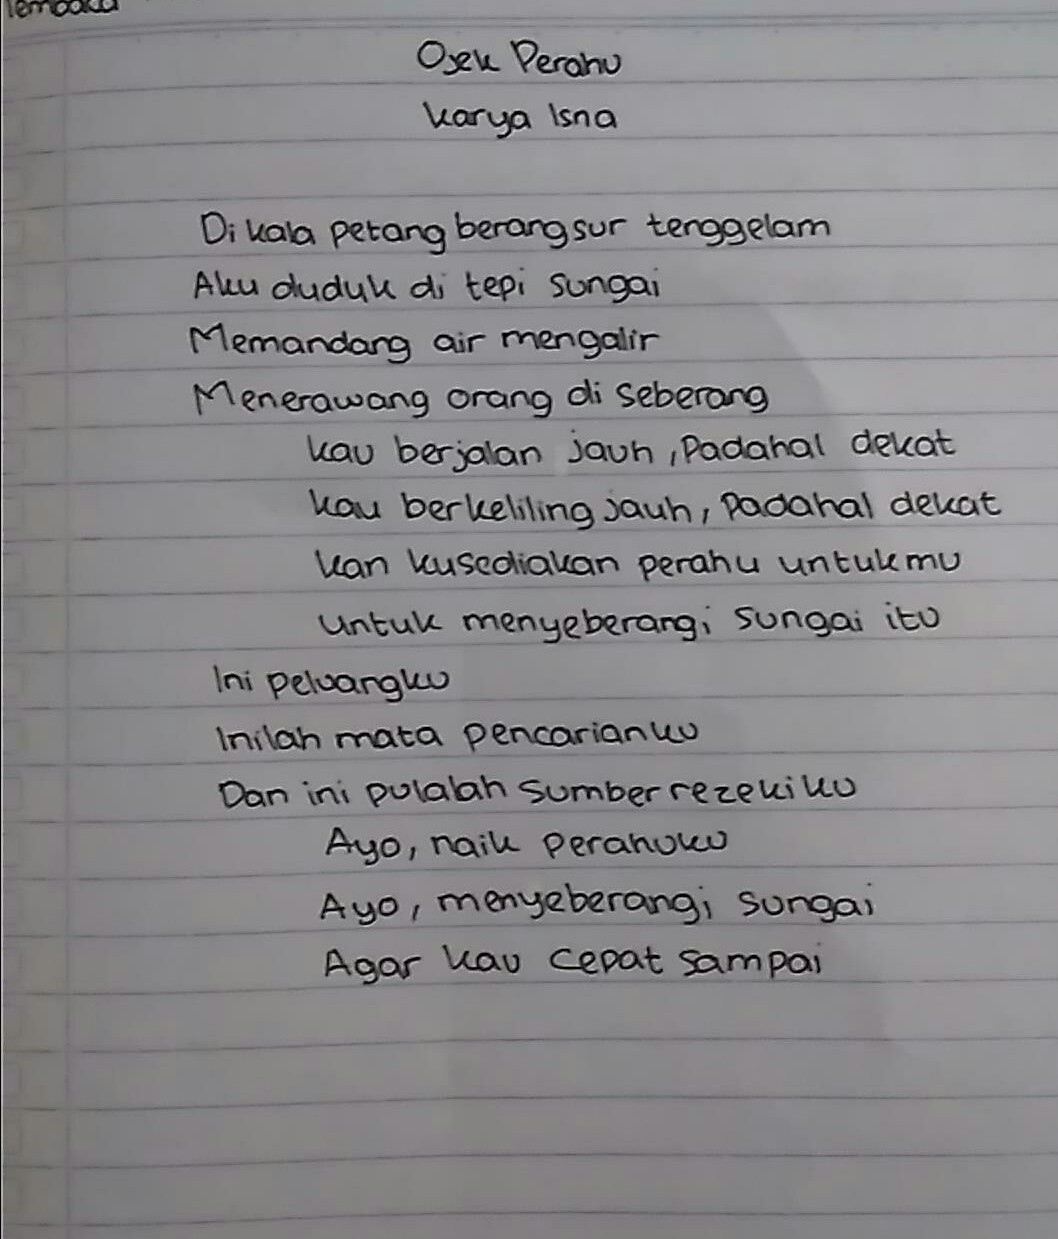 Tembaka
Ojek Perahu
Karya Isna
Di kala petang berangsur tenggelam
Aku duduk di tepi sungai
Memandang air mengalir
Menerawang orang di seberang
Kau berjalan jauh, Padahal dekat
Kau berkeliling jauh, Padahal dekat
Kan kusediakan perahu untukmu
Untuk menyeberangi sungai itu
Ini peluangku
Inilah mata pencarianku
Dan ini pulalah sumber rezekiku
Ayo, naik perahuku
Ayo, menyeberangi sungai
Agar kau cepat sampai